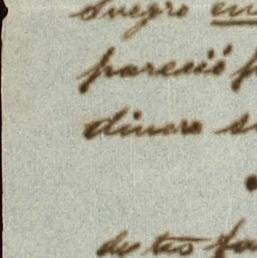 Suegro en
pareció p
dinero s
de tus fa